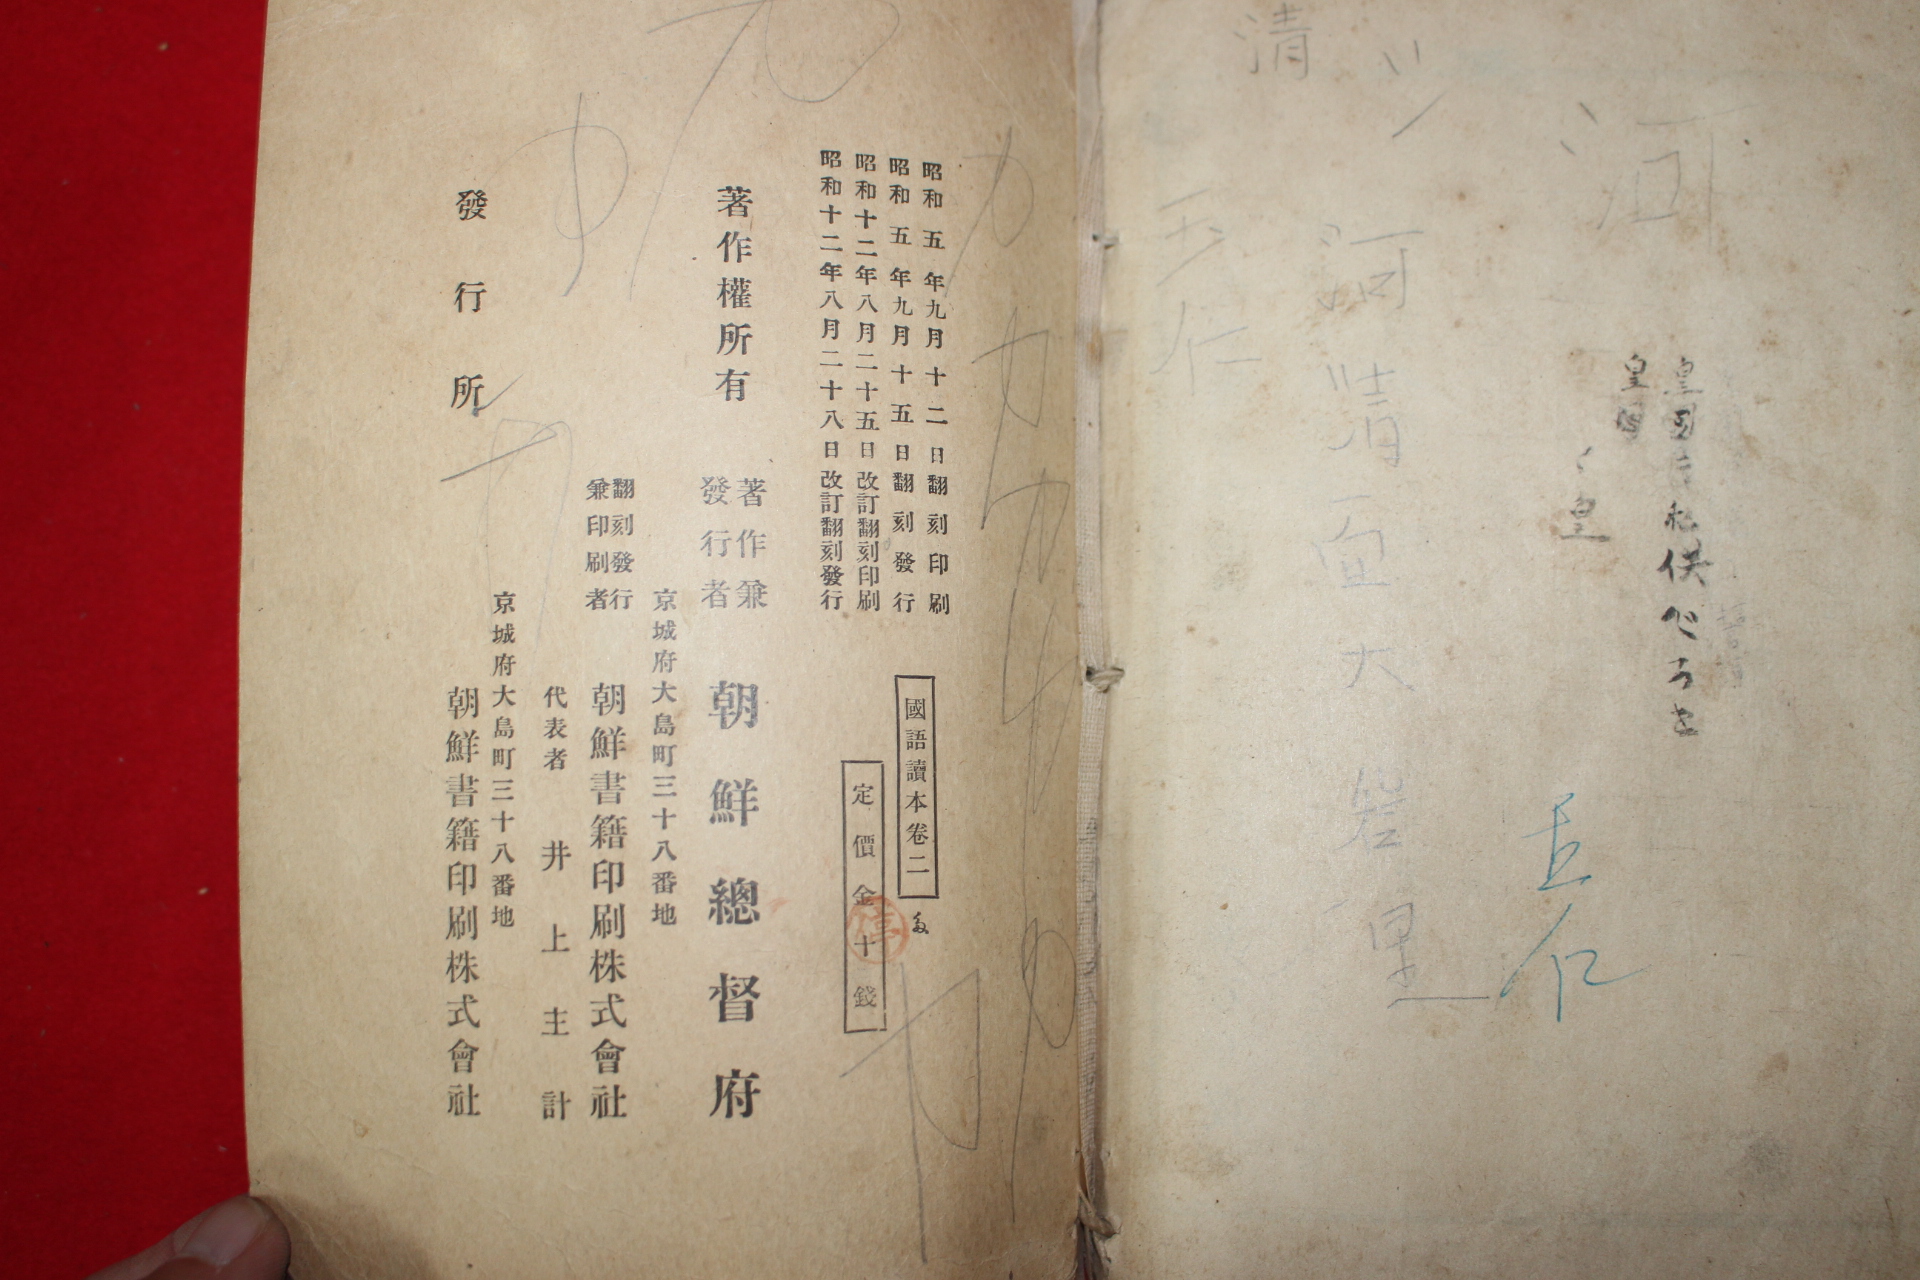 清
河
河清面大岩里
玉仁
皇国
皇国
皇
玉仁
昭和五年九月十二日翻刻印刷
昭和五年九月十五日翻刻發行
昭和十二年八月二十五日改訂翻刻印刷
昭和十二年八月二十八日改訂翻刻發行
國語讀本卷二
定價金十錢
著作權所有
著作兼
發行者
朝鮮總督府
京城府大島町三十八番地
翻刻發行
兼印刷者
朝鮮書籍印刷株式會社
代表者 井上主計
京城府大島町三十八番地
發行所
朝鮮書籍印刷株式會社